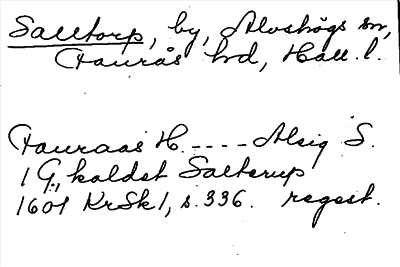 Salltorp, by, Alvshögs sn,
Faurås hd, Hall. l.
Fauraas H. ---- Alsig S.
1 G., kaldet Salterup
1601 KrSk 1, s. 336. regest.